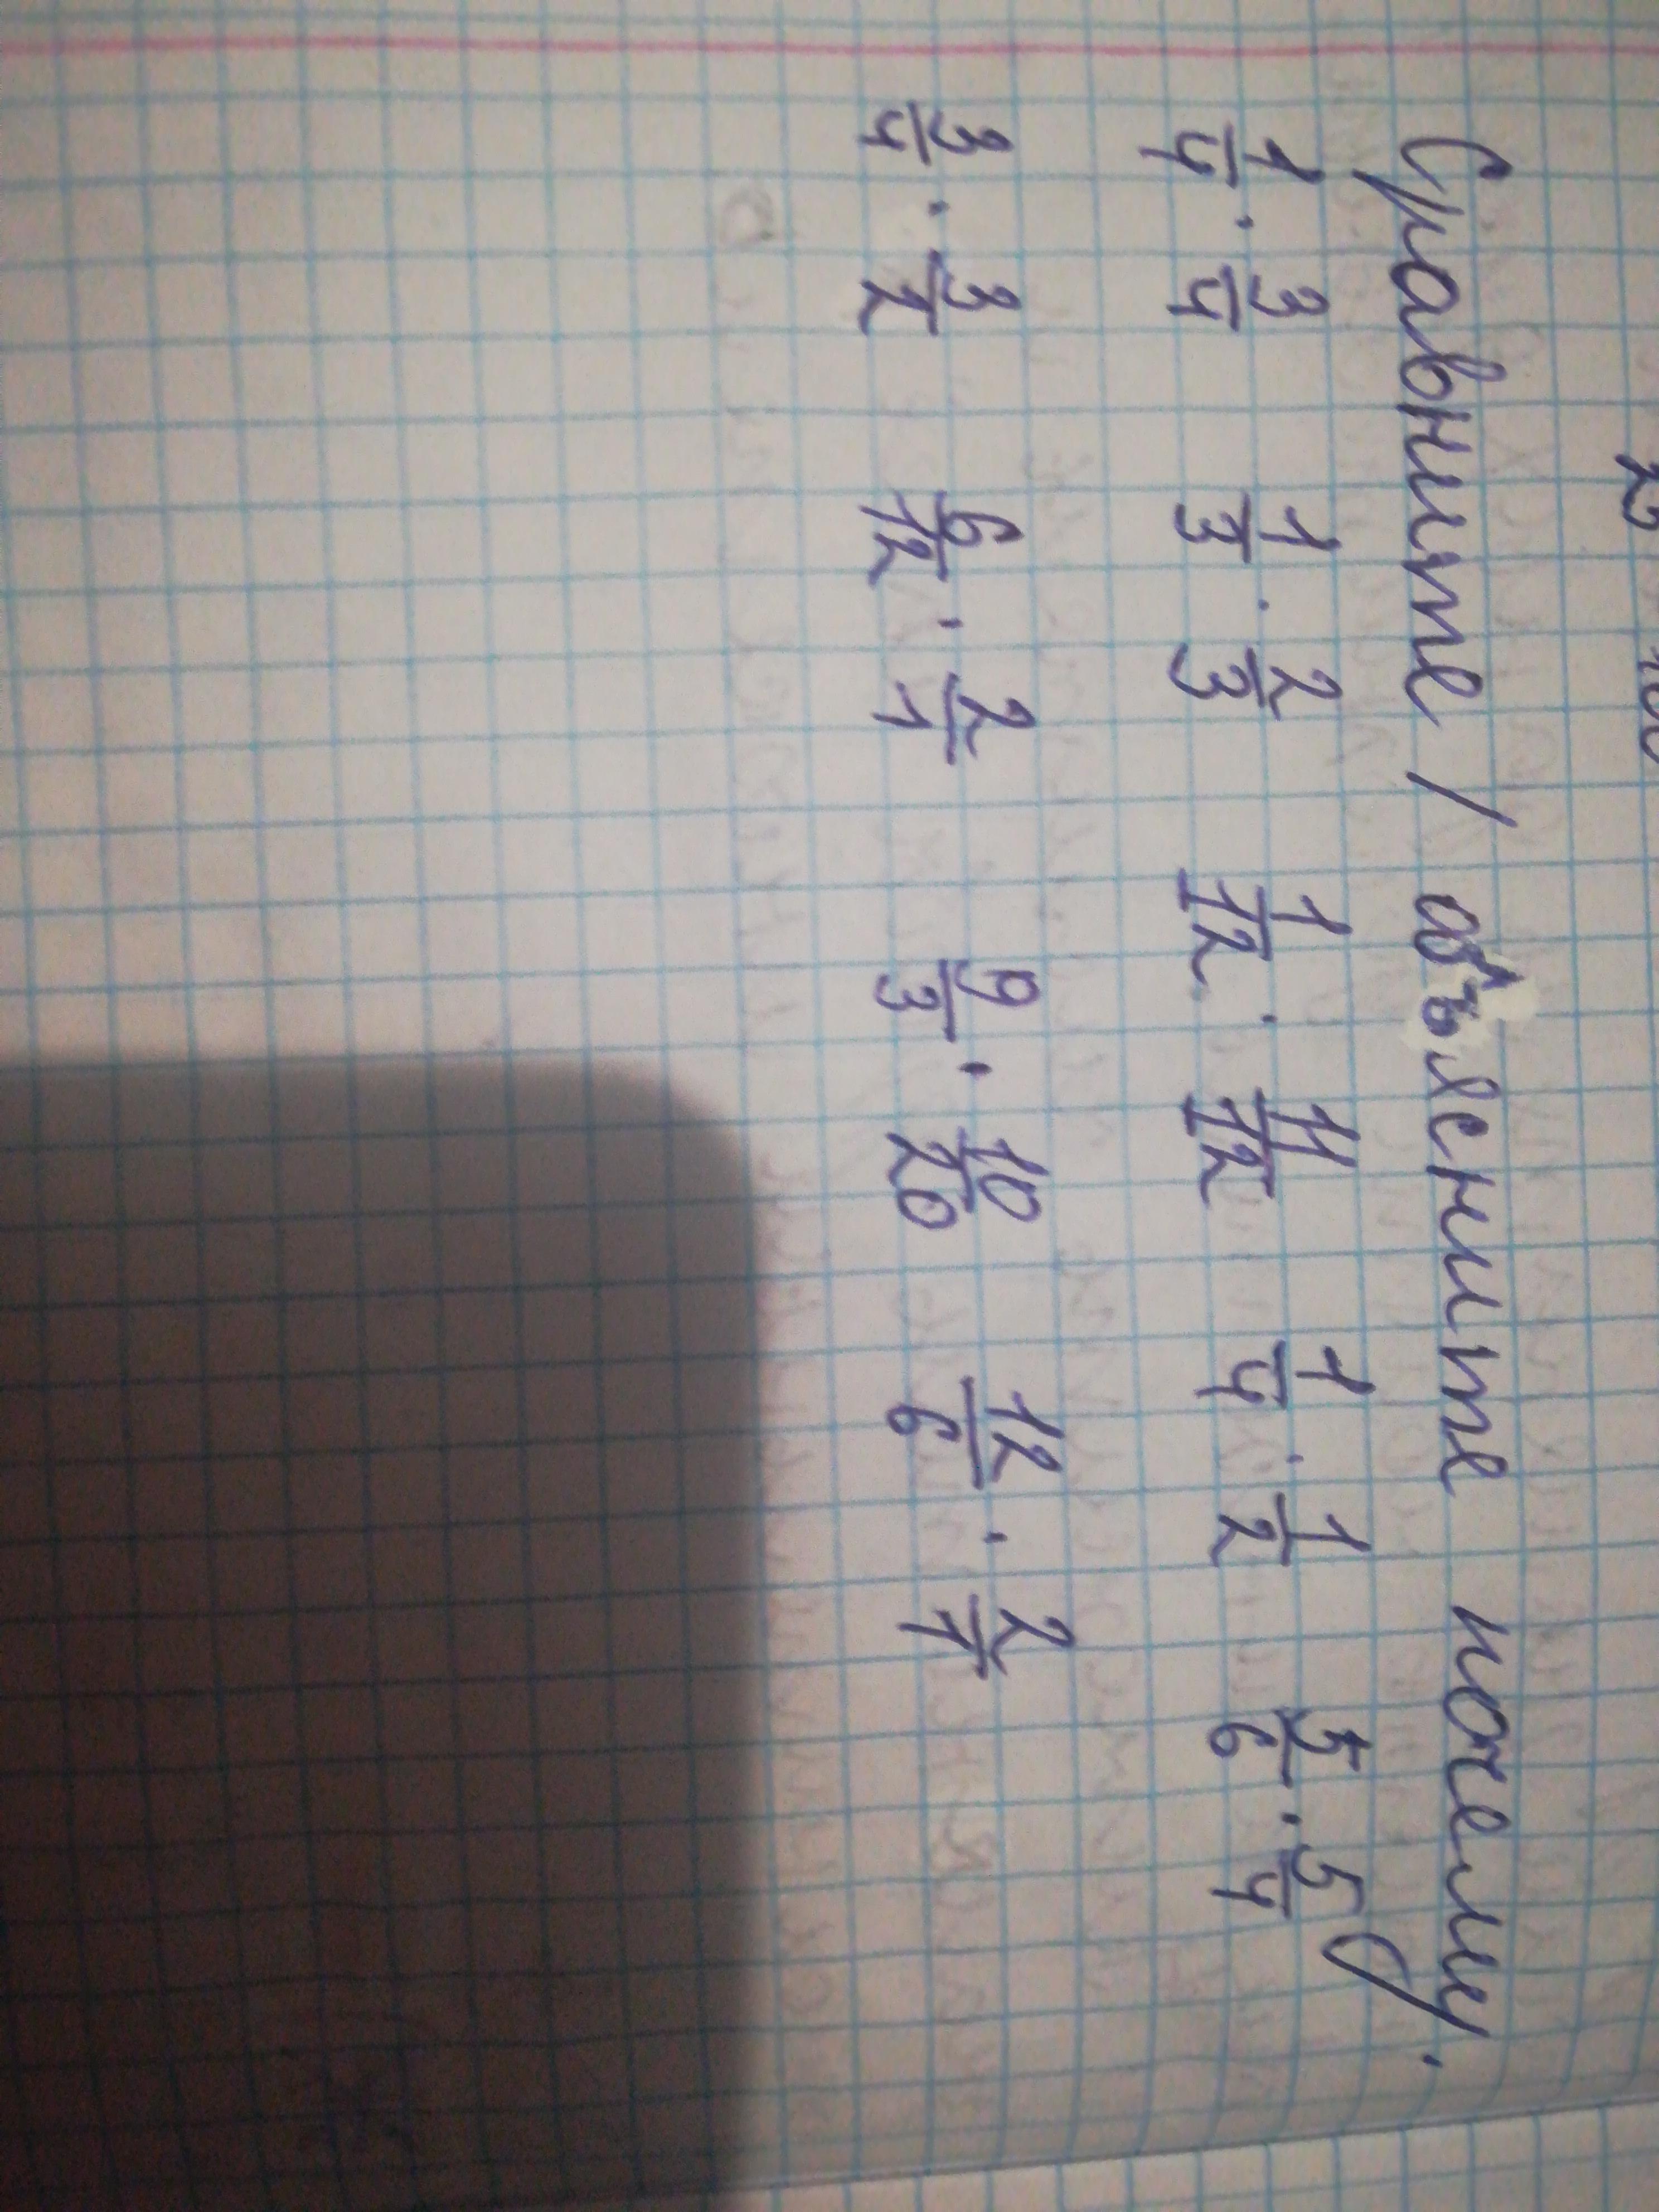 Сравните / объясните почему.
1/4 . 3/4 1/3 . 2/3 1/12 . 11/12 1/4 . 1/2 5/6 . 5/4
3/4 . 3/2 6/12 . 2/1 9/3 . 10/20 12/6 . 2/1